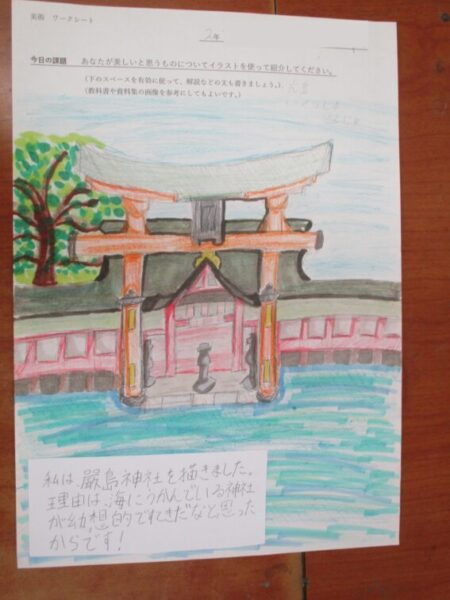 美術 ワークシート
2年
今日の課題 あなたが美しいと思うものについてイラストを使って紹介してください。
（下のスペースを有効に使って、解説などの文も書きましょう。）
（教科書や資料集の画像を参考にしてもよいです。）
私は、厳島神社を描きました。
理由は、海にうかんでいる神社
が幼想的でてきだなと思った
からです！